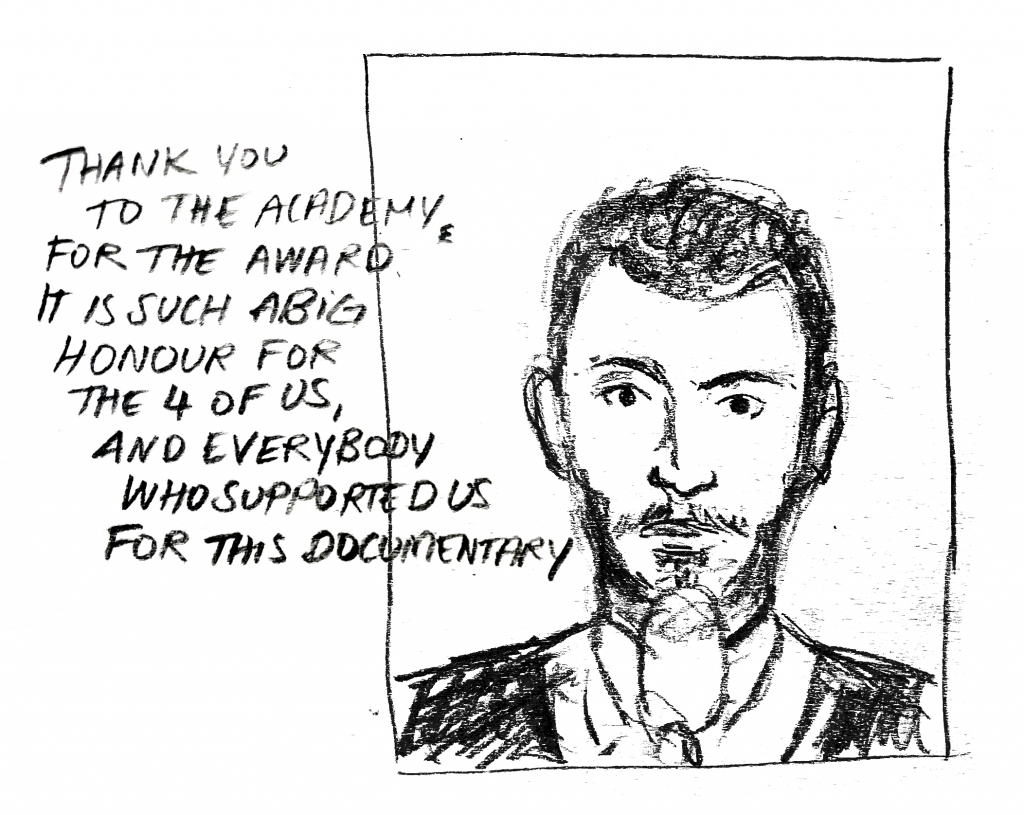 THANK YOU
TO THE ACADEMY, &
FOR THE AWARD
IT IS SUCH A BIG
HONOUR FOR
THE 4 OF US,
AND EVERYBODY
WHO SUPPORTED US
FOR THIS DOCUMENTARY